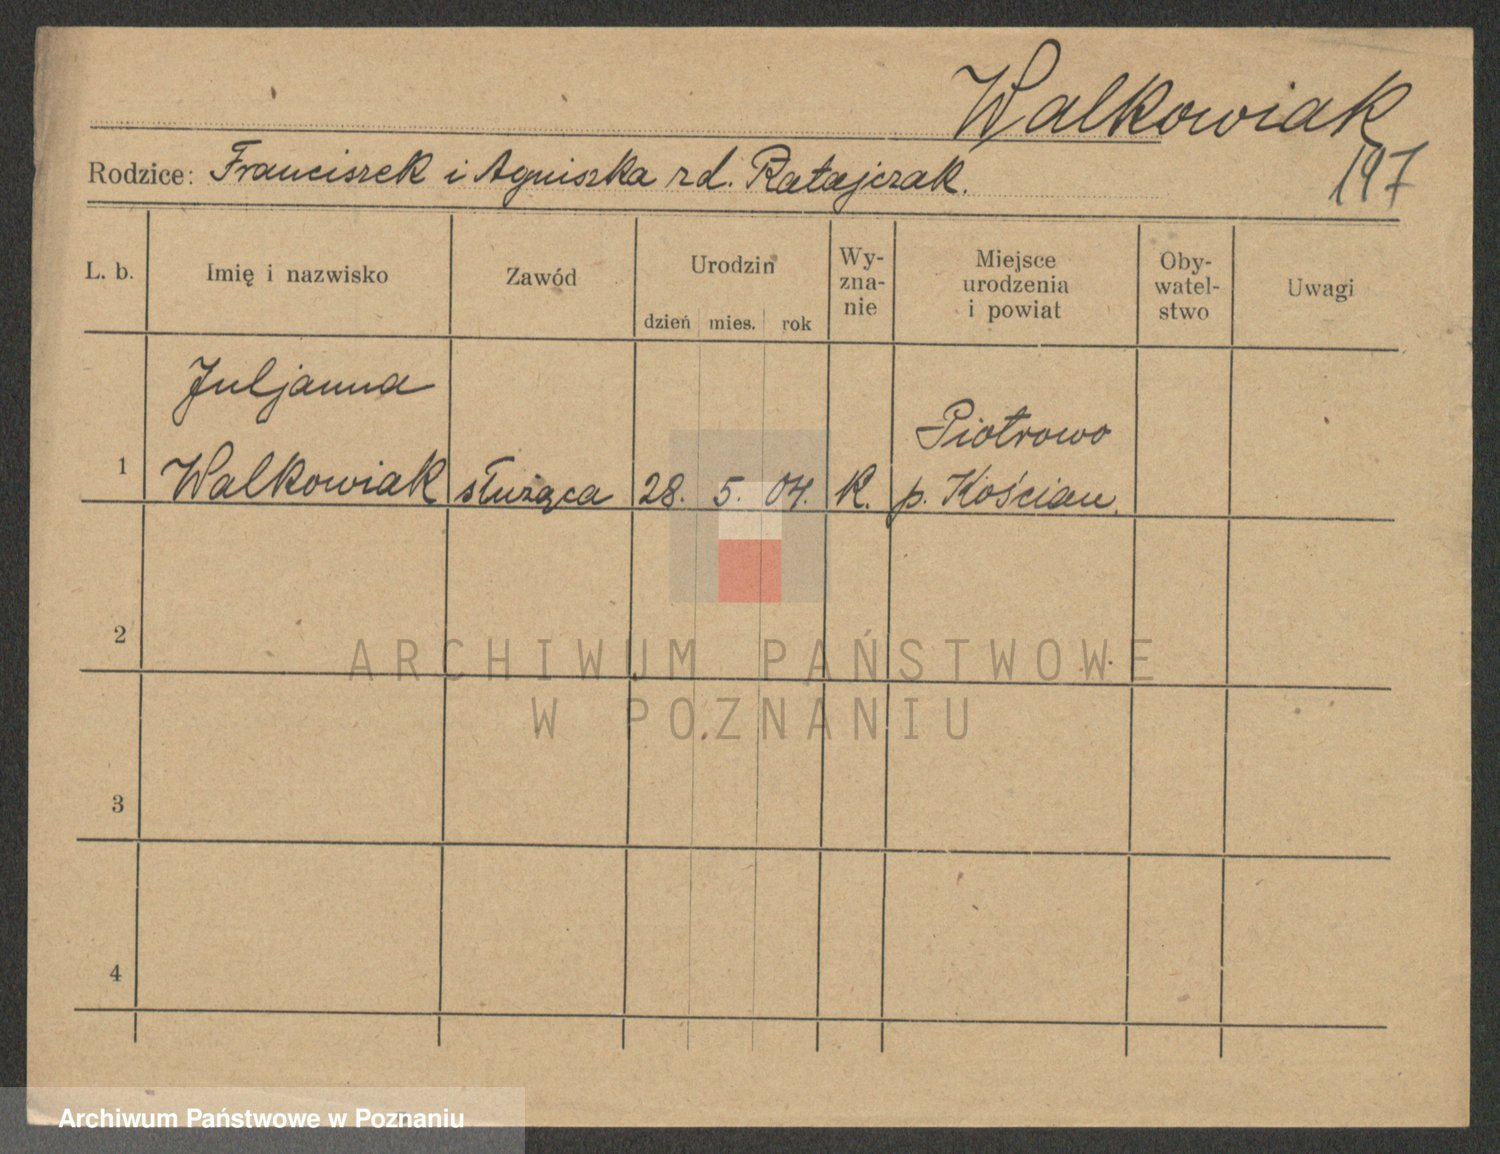 Walkowiak
197
Rodzice: Franciszek i Agniszka rd. Ratajczak.
L. b. Imię i nazwisko Zawód Urodzin dzień mies. rok Wy-zna-nie Miejsce urodzenia i powiat Oby-watel-stwo Uwagi
Juljanna
1 Walkowiak służąca 28. 5. 04. K. Piotrowo
p. Kościan.
2
ARCHIWUM PAŃSTWOWE
W POZNANIU
3
4
Archiwum Państwowe w Poznaniu